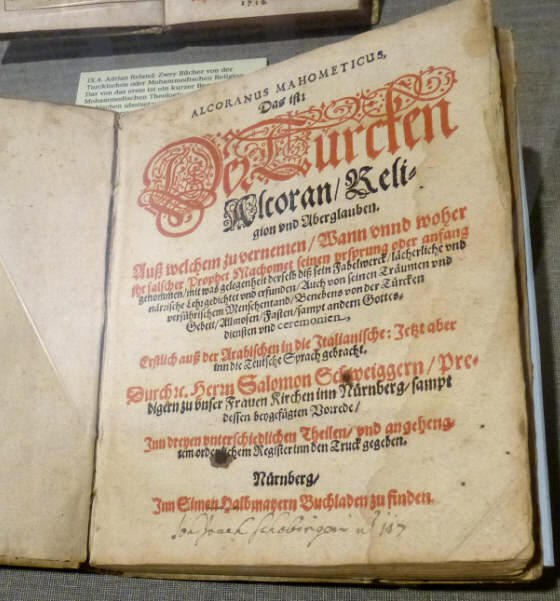 1718.
IX.4. Adrian Reland: Zwey Bücher von der
Türckischen oder Mohammedischen Religion
Das von das erste ist ein kurzer
Mohammedischen Theolog
ALCORANUS MAHOMETICUS,
Das ist:
Der Türcken
Alcoran/ Reli-
gion vnd Aberglauben.
Auß welchem zu vernemen/ Wann vnnd woher
ihr falscher Prophet Machomet seinen vrsprung oder anfang
genommen/ mit was gelegenheit derselb diß sein Fabelwerck/ lächerliche vnd
närrische Lehr gedichtet vnd erfunden/ Auch von seinen Träumen vnd
verführischem Menschentand/ Benebens von der Türcken
Gebett/ Allmosen/ Fasten/ sampt andern Gottes-
diensten vnd ceremonien.
Erstlich auß der Arabischen in die Italianische: Jetzt aber
inn die Teutsche Sprach gebracht.
Durch ꝛc. Herrn Salomon Schweiggern/ Pre-
digern zu vnser Frauen Kirchen inn Nürnberg/ sampt
dessen beygefügten Vorrede/
Inn dreyen vnterschiedlichen Theilen/ vnd angeheng-
tem ordenlichem Register inn den Truck gegeben.
Nürnberg/
Inn Simon Halbmayern Buchladen zu finden.